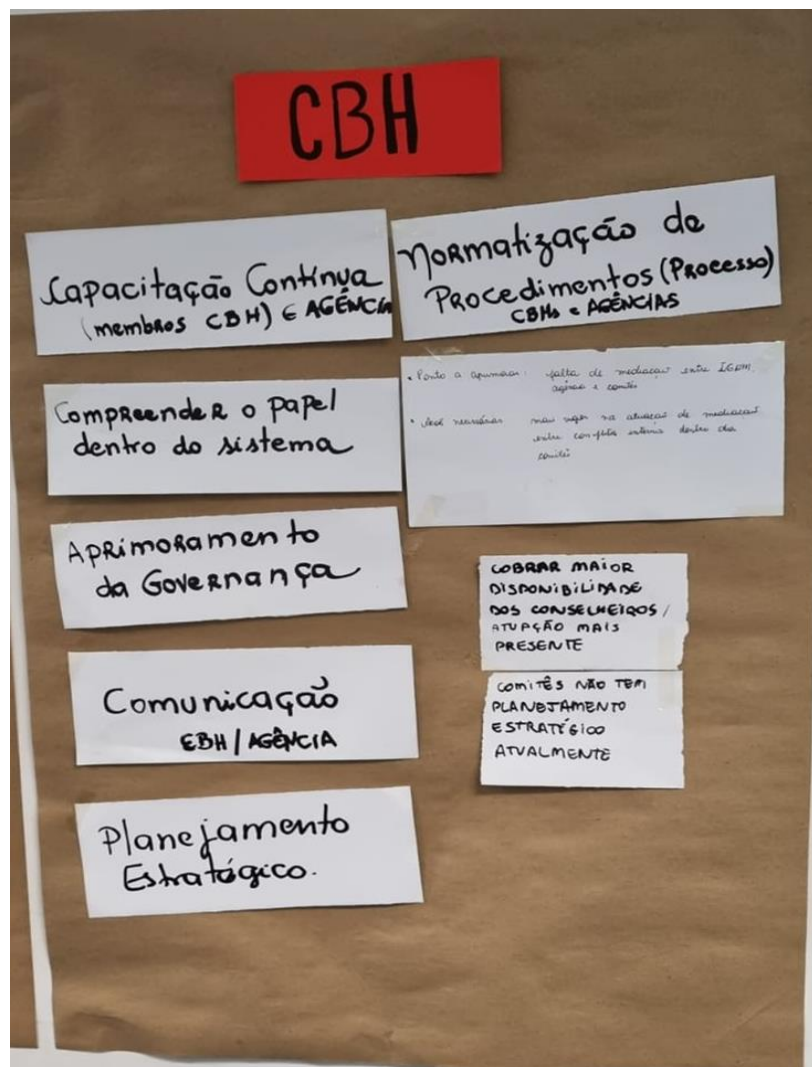 CBH
Capacitação Contínua
(membros CBH) E AGÊNCIA
Compreender o papel
dentro do sistema
Aprimoramento
da Governança
Comunicação
CBH / AGÊNCIA
Planejamento
Estratégico.
Normatização de
Procedimentos (Processo)
CBHs e AGÊNCIAS
• Ponto a aprimorar: falta de mediação entre IGAM,
agência e comitê
•
mais vigor na atuação de mediação
entre conflitos internos dentro dos
comitês
COBRAR MAIOR
DISPONIBILIDADE
DOS CONSELHEIROS /
ATUAÇÃO MAIS
PRESENTE
COMITÊS NÃO TEM
PLANEJAMENTO
ESTRATÉGICO
ATUALMENTE